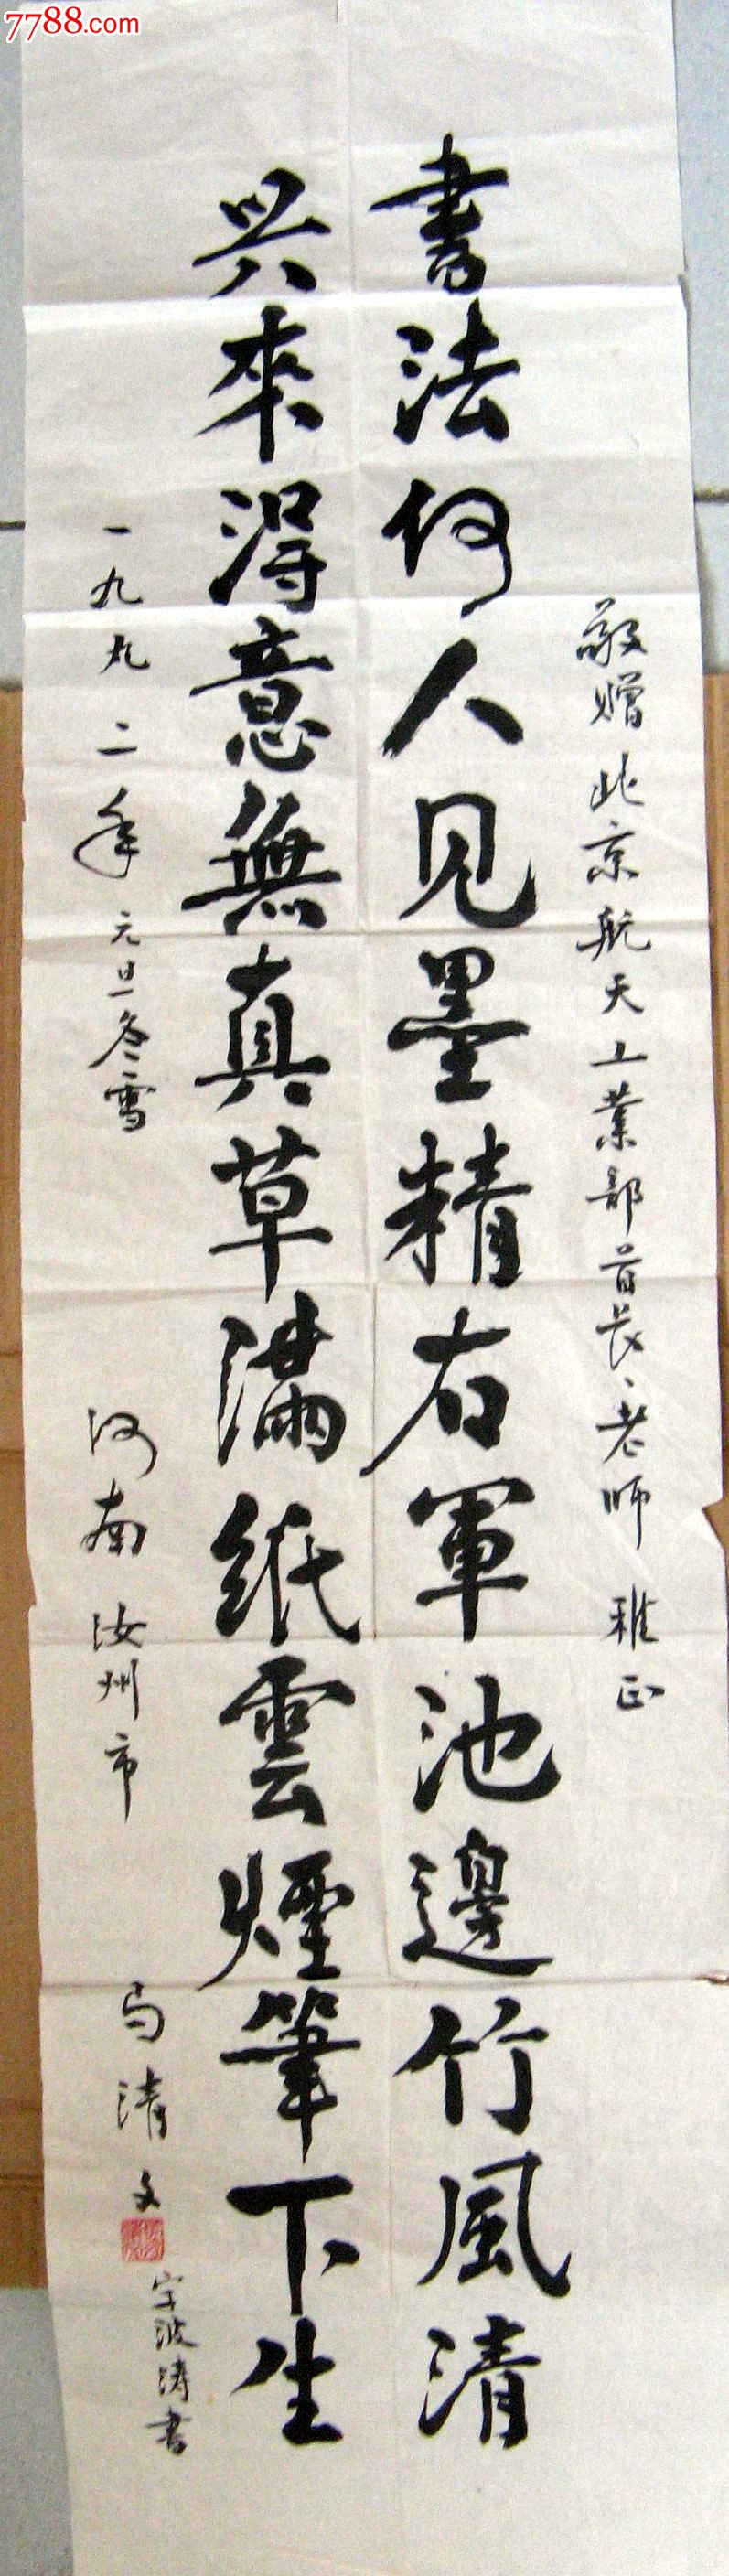 7788.com
敬赠北京航天工业部首长、老师 雅正
書法何人见墨精右軍池邊竹風清
兴來得意無真草满纸雲煙筆下生
一九九二年元旦冬雪 河南汝州市 清文
字波涛書